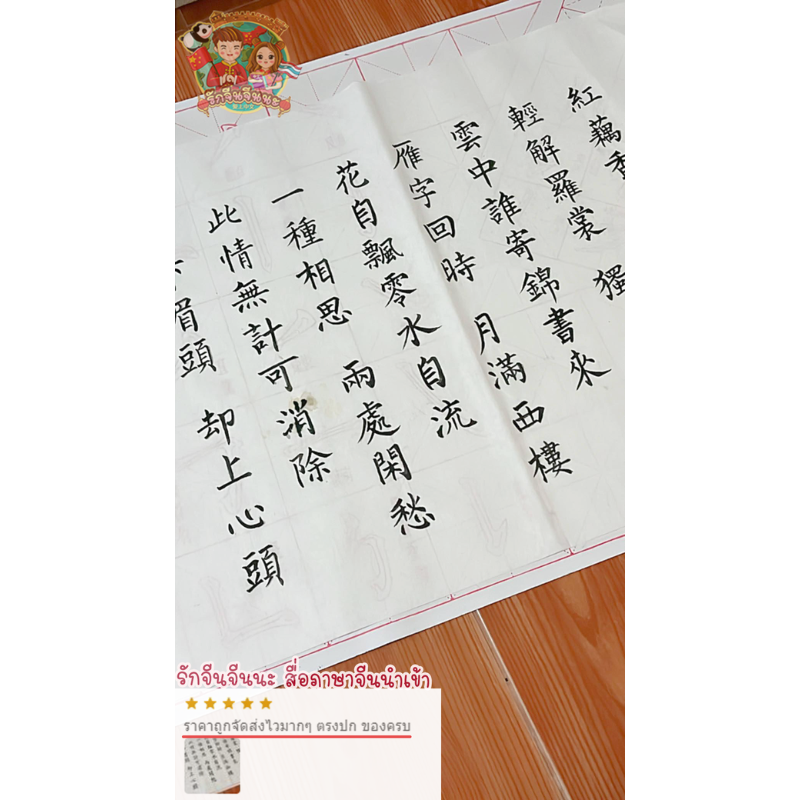 รักจีนจีนนะ
紅藕香
輕解羅裳 獨
雲中誰寄錦書來
雁字回時 月滿西樓
花自飄零水自流
一種相思 兩處閑愁
此情無計可消除
眉頭 却上心頭
รักจีนจีนนะ สื่อภาษาจีนนำเข้า
ราคาถูกจัดส่งไวมากๆ ตรงปก ของครบ